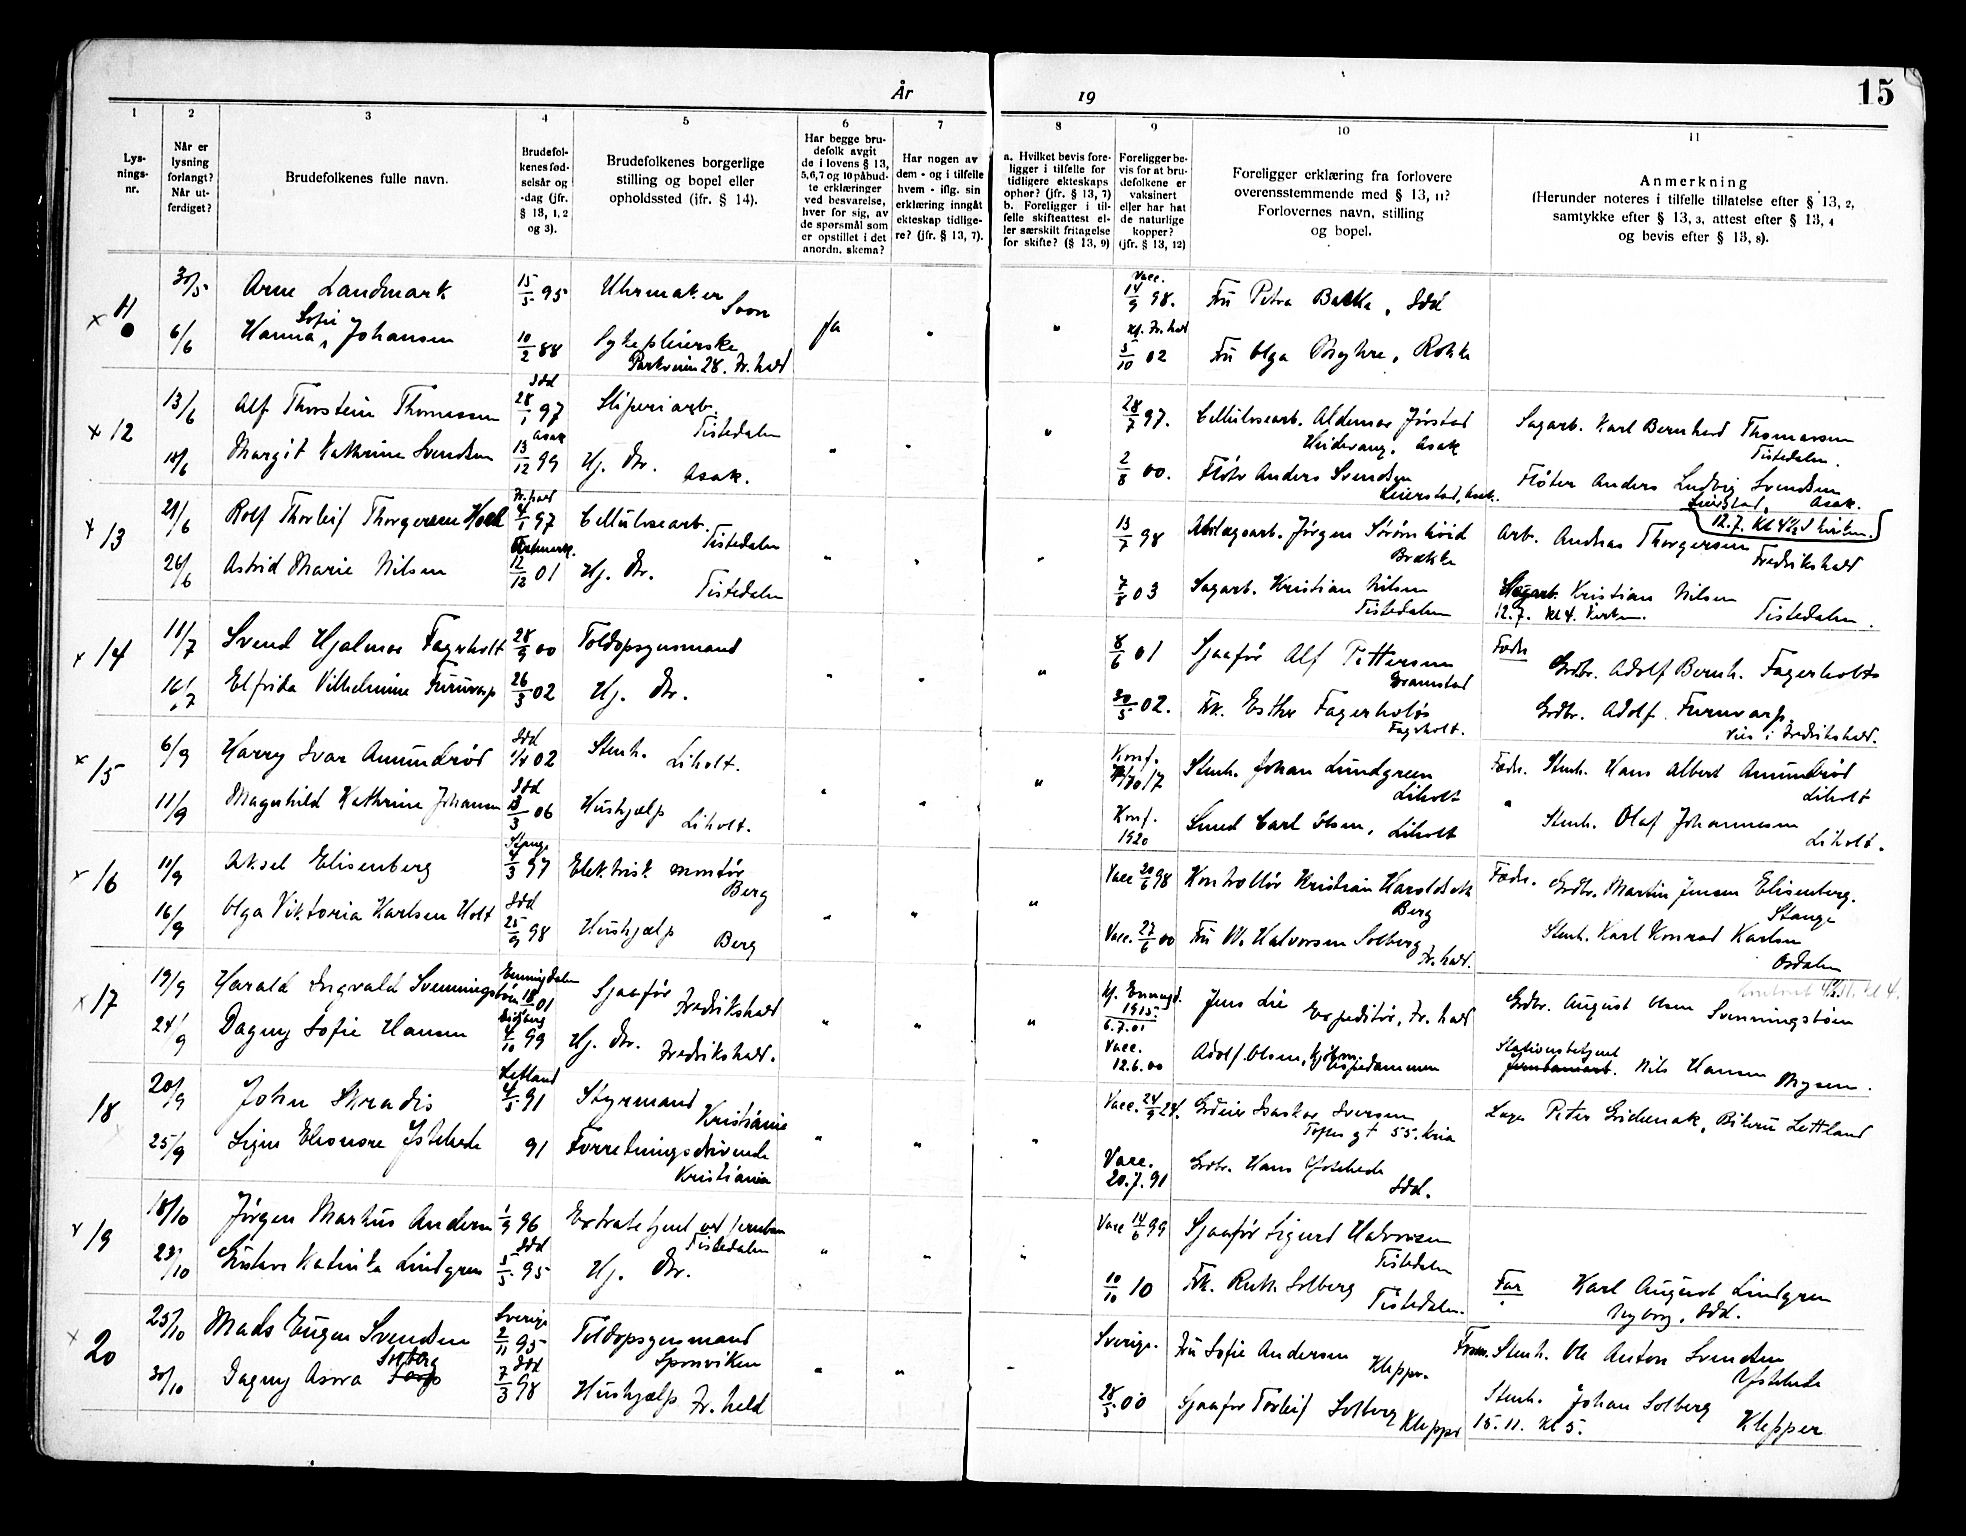 År 19
15
1 2 3 4 5 6 7 8 9 10 11
Lys-
nings-
nr.
Når er
lysning
forlangt?
Når ut-
ferdiget?
Brudefolkenes fulle navn.
Brudefol-
kenes fød-
selsår og
-dag (jfr.
§ 13, 1, 2
og 3).
Brudefolkenes borgerlige
stilling og bopel eller
opholdssted (jfr. § 14).
Har begge bru-
defolk avgit
de i lovens § 13,
5,6,7 og 10 påbud-
te erklæringer
ved besvarelse,
hver for sig, av
de spørsmål som
er opstillet i det
anordn. skema?
Har nogen av
dem - og i tilfelle
hvem - iflg. sin
erklæring inngåt
ekteskap tidlige-
re? (jfr. § 13, 7).
a. Hvilket bevis fore-
ligger i tilfelle for
tidligere ekteskaps
ophør? (jfr. § 13, 7)
b. Foreligger i til-
felle skifteattest el-
ler særskilt fritagelse
for skifte? (§ 13, 9)
Foreligger be-
vis for at bru-
defolkene er
vaksinert
eller har hat
de naturlige
kopper?
(jfr. § 13, 12)
Foreligger erklæring fra forlovere
overensstemmende med § 13, 11?
Forlovernes navn, stilling
og bopel.
Anmerkning
(Herunder noteres i tilfelle tillatelse efter § 13, 2,
samtykke efter § 13, 3, attest efter § 13, 4
og bevis efter § 13, 8).
x 11 30/5 Arne Landmark 15/5 95 Uhrmaker Soon Ja " " Vacc. 14/9 98. Fru Petra Bakka, Idd
6/6 Hanna Sofie Johansen 10/2 88 Sykepleierske Parkveien 28. Fr.hald Fr.hald 5/10 02 Fru Olga , Rokke
x 12 13/6 Alf Thorstein Thomassen Idd 28/1 97 Sliperiarb. Tistedalen " " " 28/7 97. Cellulosearb. Aldemar Jørstad Heidevang, Asak Sagarb. Karl Bernhard Thomassen Tistedalen.
18/6 Margit Kathrine Svendsen Asak 13/12 99 Hj. dtr. Asak. 2/8 00. Fløter Anders Svendsen Leierstad, Asak. Fløter Anders Ludvig Svendsen Leierstad, Asak.
x 13 21/6 Rolf Thorleif Thorgersen Hoel Fr.hald 4/1 97 Cellulosearb. Tistedalen " " " 13/7 98 Jørgen Brække 12.7. Kl 4½ i kirken. Arb. Andreas Thorgersen Fredrikshald
26/6 Astrid Marie Nilsen 12/12 01 Hj. dtr. Tistedalen 7/8 03 Sagarb. Kristian Nilsen Tistedalen Sagarb. Kristian Nilsen Tistedalen.
12.7. Kl 4. Kirken.
x 14 11/7 Svend Hjalmar Fagerholt 28/9 00 Toldopsynsmand " " " 8/6 01 Sjaafør Alf Pettersen Gramstad Fadr. Grdbr. Adolf Bernh. Fagerholt
16/7 Elfrida Vilhelmine Furuvarp 26/3 02 Hj. dtr. 30/5 02. Frk. Esther Fagerholt Fagerholt. Grdbr. Adolf Furuvarp. Vies i Fredrikshald.
x 15 6/9 Harry Ivar Amundrød Idd 02 Stenh. Liholt. " " " Konf. Stenh. Johan Lundgreen Liholt Fadr. Stenh. Hans Albert Amundrød Liholt
11/9 Magnhild Kathrine Johansen Idd 13/3 06 Hushjælp Liholt. Konf. 1920 Smed Carl Olsen, Liholt " Stenh. Olaf Johannesen Liholt.
x 16 11/9 Aksel Elisenberg Stange 4/3 97 Elektrisk montør Berg " " " Vacc 20/6 98 Kontrollør Kristian Haroldsen Berg Fadr. Grdbr. Martin Jensen Elisenberg. Stange
16/9 Olga Viktoria Karlsen Holt Idd 25/9 98 Hushjælp Berg Vacc. 27/6 00 Fru W. Halvorsen Solberg Fr.hald. Stenh. Karl Konrad Karlsen Osdalen
x 17 19/9 Harald Ingvald Svenningsbøen Enningdalen 18 01 Sjaafør Fredrikshald " " " Enningd. 1915 6.7.01 Jens Lie Expeditør, Fr.hald Grdbr. August Olsen Svenningsbøen
24/9 Dagny Sofie Hansen 4/10 99 Hj. dtr. Fredrikshald. Vacc. 12.6.00 Adolf Olsen, kjøbm. Stationsbetjent Jernbanearb. Nils Hansen Mysen.
18 20/9 John Skradis Letland 4/5 91 Styrmand Kristiania " " " Vacc. 24/9 24. Iversen gt 55. Kria Peter , Letland
25/9 Signe Eleonore Ystehede 91 Forretningsdrivende Kristiania Vacc. 20.7.91 Grdbr. Hans Ystehede Idd.
x 19 18/10 Jørgen Markus Andersen 1/9 96 Extrabetjent ved jernban Tistedalen " " " Vacc 14/6 99 Sjaafør Sigurd Halvorsen Tistedalen
23/10 Gustava Katinka Lindgren Idd 3/5 95 Hj. dtr. 10/10 10 Frk. Ruth Solberg Tistedalen. Far Karl August Lindgren Nyborg, Idd.
x 20 25/10 Mads Eugen Svendsen Sverige 2/11 95 Toldopsynsmand Sponviken " " - Sverige. Fru Sofie Andersen Klepper. Stenh. Ole Anton Svendsen Ystehede
30/10 Dagny Asora Solberg Idd 7/3 98 Hushjælp Fr.hald 28/5 00 Sjaafør Torleif Solberg Klepper Stenh. Johan Solberg Klepper
15.11. Kl 5.